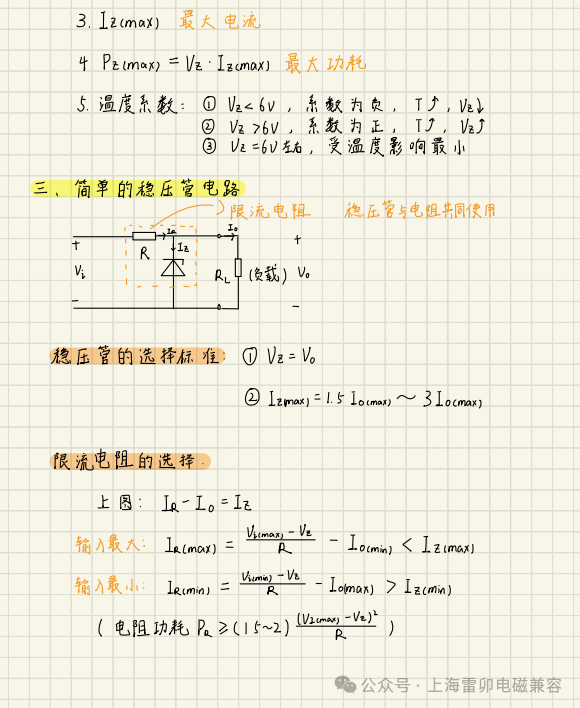 3. Iz(max) 最大电流
4 Pz(max) = Vz · Iz(max) 最大功耗
5. 温度系数: ① Vz < 6V, 系数为负, T↑, Vz↓
② Vz > 6V, 系数为正, T↑, Vz↑
③ Vz = 6V 左右, 受温度影响最小
三、简单的稳压管电路
限流电阻 稳压管与电阻共同使用
IR Io
+ R Iz +
Vi RL (负载) Vo
- -
稳压管的选择标准: ① Vz = Vo
② Iz(max) = 1.5 Io(max) ~ 3 Io(max)
限流电阻的选择.
上图: IR - Io = Iz
输入最大: IR(max) = (Vi(max) - Vz)/R - Io(min) < Iz(max)
输入最小: IR(min) = (Vi(min) - Vz)/R - Io(max) > Iz(min)
( 电阻功耗 PR ≥ (1.5~2) (VI(max) - Vz)²/R )
公众号 · 上海雷卯电磁兼容